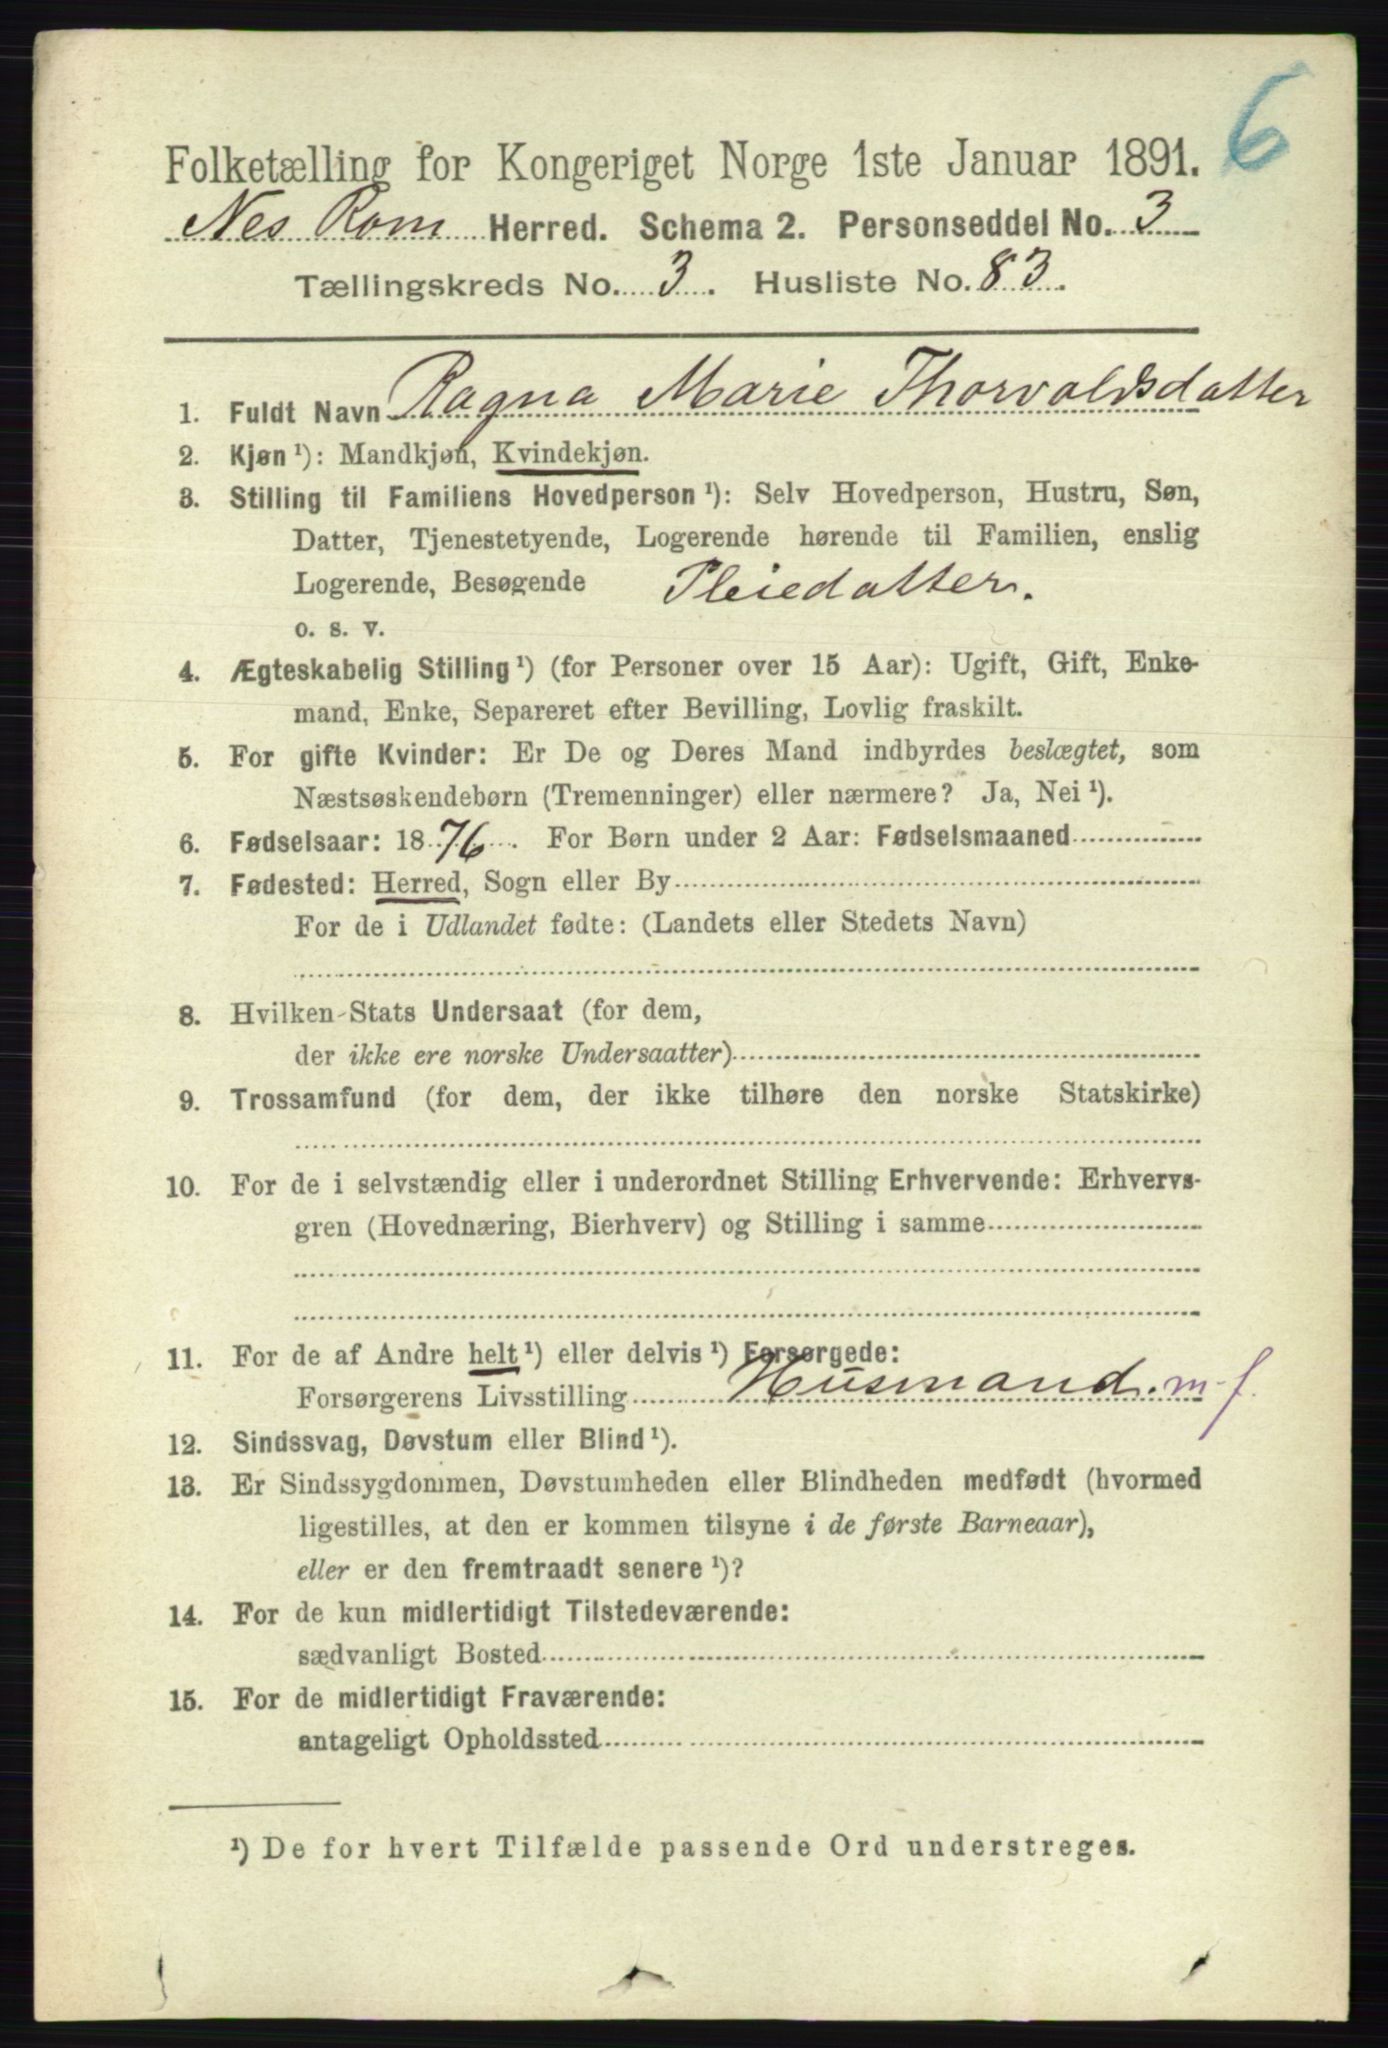 6
Folketælling for Kongeriget Norge 1ste Januar 1891.
Nes Rom Herred. Schema 2. Personseddel No. 3
Tællingskreds No. 3. Husliste No. 83.
1. Fuldt Navn Ragna Marie Thorvaldsdatter
2. Kjøn ¹): Mandkjøn, Kvindekjøn.
3. Stilling til Familiens Hovedperson ¹): Selv Hovedperson, Hustru, Søn,
Datter, Tjenestetyende, Logerende hørende til Familien, enslig
Logerende, Besøgende Pleiedatter.
o. s. v.
4. Ægteskabelig Stilling ¹) (for Personer over 15 Aar): Ugift, Gift, Enke-
mand, Enke, Separeret efter Bevilling, Lovlig fraskilt.
5. For gifte Kvinder: Er De og Deres Mand indbyrdes beslægtet, som
Næstsøskendebørn (Tremenninger) eller nærmere? Ja, Nei ¹).
6. Fødselsaar: 1876. For Børn under 2 Aar: Fødselsmaaned
7. Fødested: Herred, Sogn eller By
For de i Udlandet fødte: (Landets eller Stedets Navn)
8. Hvilken Stats Undersaat (for dem,
der ikke ere norske Undersaatter)
9. Trossamfund (for dem, der ikke tilhøre den norske Statskirke)
10. For de i selvstændig eller i underordnet Stilling Erhvervende: Erhvervs-
gren (Hovednæring, Bierhverv) og Stilling i samme
11. For de af Andre helt ¹) eller delvis ¹) Forsørgede:
Forsørgerens Livsstilling Husmand. m. f.
12. Sindssvag, Døvstum eller Blind ¹).
13. Er Sindssygdommen, Døvstumheden eller Blindheden medfødt (hvormed
ligestilles, at den er kommen tilsyne i de første Barneaar),
eller er den fremtraadt senere ¹)?
14. For de kun midlertidigt Tilstedeværende:
sædvanligt Bosted
15. For de midlertidigt Fraværende:
antageligt Opholdssted
¹) De for hvert Tilfælde passende Ord understreges.